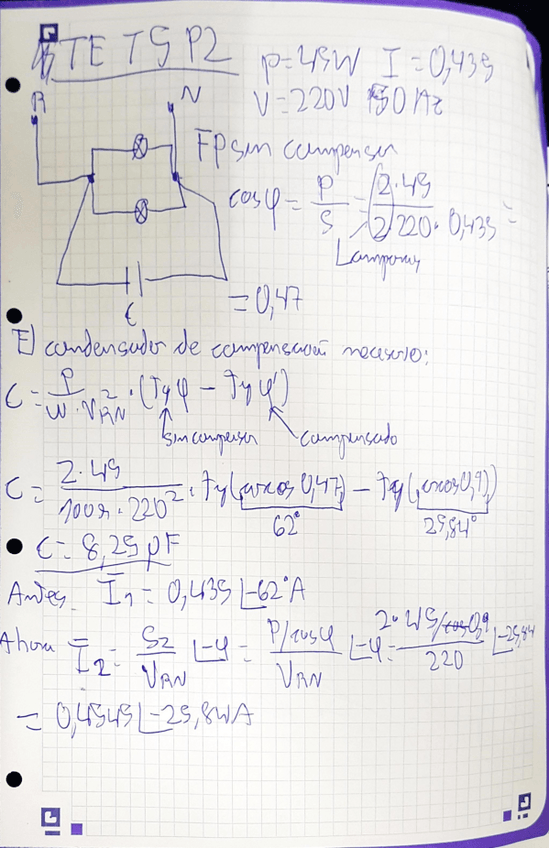 TE T5 P2
P=45W I=0,435
V=220V 50Hz
R N
FP sin compensar
cosφ = P/S = 2·45/2·220·0,435 =
Lamparas
= 0,47
C
El condensador de compensación necesario:
C = P/ω·V_RN² · (Tgφ - Tgφ')
sin compensar compensado
C = 2·45/100π·220² · Tg(arcos 0,47) - Tg(arcos 0,9)
62° 25,84°
C = 8,25 µF
Antes I₁ = 0,435∠-62° A
Ahora I₂ = S₂/V_RN ∠-φ = P/cosφ/V_RN ∠-φ = 2·45/cos0,9/220 ∠-25,84
= 0,4545∠-25,84A